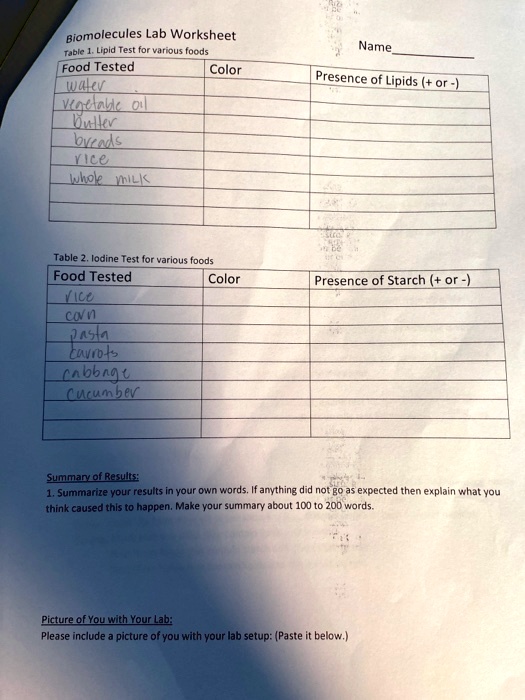 Biomolecules Lab Worksheet
Name
Table 1. Lipid Test for various foods
Food Tested Color Presence of Lipids (+ or -)
water
vegetable oil
butter
breads
rice
whole milk
Table 2. Iodine Test for various foods
Food Tested Color Presence of Starch (+ or -)
rice
corn
pasta
carrots
cabbage
cucumber
Summary of Results:
1. Summarize your results in your own words. If anything did not go as expected then explain what you
think caused this to happen. Make your summary about 100 to 200 words.
Picture of You with Your Lab:
Please include a picture of you with your lab setup: (Paste it below.)